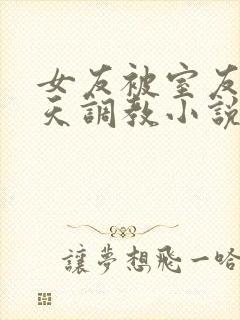 女友被室友
天調教小說
讓夢想飛一哈